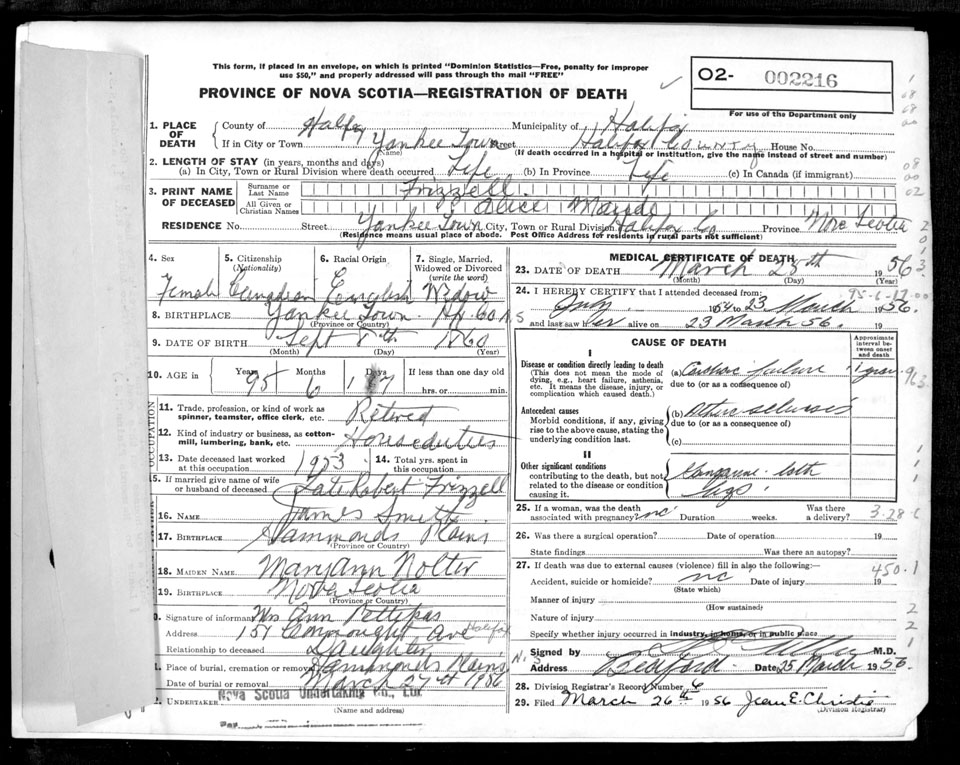 This form, if placed in an envelope, on which is printed "Dominion Statistics—Free, penalty for improper
use $50," and properly addressed will pass through the mail "FREE"
PROVINCE OF NOVA SCOTIA—REGISTRATION OF DEATH
O2- 002216
For use of the Department only
1. PLACE OF DEATH
County of Halifax Municipality of Halifax
If in City or Town Yankee Town Street Halifax County House No.
(Name) (If death occurred in a hospital or institution, give the name instead of street and number)
2. LENGTH OF STAY (in years, months and days)
(a) In City, Town or Rural Division where death occurred Life (b) In Province Life (c) In Canada (if immigrant)
3. PRINT NAME OF DECEASED
Surname or Last Name Frizzell
All Given or Christian Names Alice Maude
RESIDENCE No. Street Yankee Town City, Town or Rural Division Halifax Co Province Nova Scotia
(Residence means usual place of abode. Post Office Address for residents in rural parts not sufficient)
4. Sex 5. Citizenship (Nationality) 6. Racial Origin 7. Single, Married, Widowed or Divorced (write the word)
Female Canadian English Widow
8. BIRTHPLACE Yankee Town Hfx Co N.S
(Province or Country)
9. DATE OF BIRTH Sept 8th 1860
(Month) (Day) (Year)
10. AGE in Years Months Days If less than one day old
95 6 17 hrs. or min.
OCCUPATION
11. Trade, profession, or kind of work as spinner, teamster, office clerk, etc. Retired
12. Kind of industry or business, as cotton-mill, lumbering, bank, etc. House duties
13. Date deceased last worked at this occupation 1953 14. Total yrs. spent in this occupation
15. If married give name of wife or husband of deceased Late Robert Frizzell
16. NAME James Smith
17. BIRTHPLACE Hammonds Plains
(Province or Country)
18. MAIDEN NAME Mary Ann Nolter
19. BIRTHPLACE Nova Scotia
(Province or Country)
Signature of informant Mrs Ann Pettipas
Address 151 Connought Ave Halifax
Relationship to deceased Daughter
Place of burial, cremation or removal Hammonds Plains
Date of burial or removal March 27th 1956
UNDERTAKER Nova Scotia Undertaking Co., Ltd.
(Name and address)
Per
MEDICAL CERTIFICATE OF DEATH
23. DATE OF DEATH March 25th 1956
(Month) (Day) (Year)
24. I HEREBY CERTIFY that I attended deceased from:
July 1954 to 23 March 1956.
and last saw her alive on 23 March 56. 19
CAUSE OF DEATH
Approximate interval between onset and death
I
Disease or condition directly leading to death
(This does not mean the mode of dying, e.g., heart failure, asthenia, etc. It means the disease, injury, or complication which caused death.)
(a) Cardiac failure 1 year
due to (or as a consequence of)
Antecedent causes
Morbid conditions, if any, giving rise to the above cause, stating the underlying condition last.
(b)
due to (or as a consequence of)
(c)
II
Other significant conditions
contributing to the death, but not related to the disease or condition causing it.
Gangrene both legs
25. If a woman, was the death associated with pregnancy? no Duration weeks. Was there a delivery?
3-28-6
26. Was there a surgical operation? Date of operation 19
State findings Was there an autopsy?
27. If death was due to external causes (violence) fill in also the following:—
450.1
Accident, suicide or homicide? no Date of injury 19
(State which)
Manner of injury
(How sustained)
Nature of injury
Specify whether injury occurred in industry, in home, or in public place
Signed by M.D.
Address Bedford N.S Date 25 March 1956.
28. Division Registrar's Record Number 6
29. Filed March 26th 1956 Jean E. Christie
(Division Registrar)